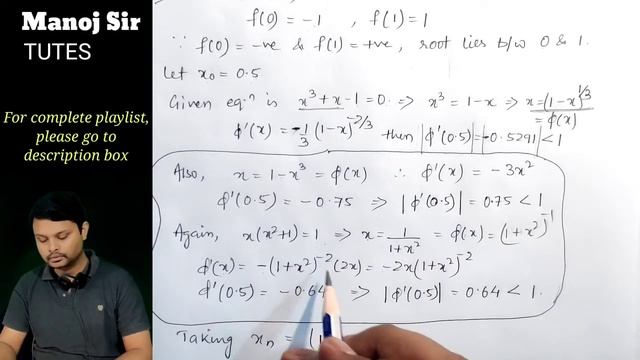 Manoj Sir
TUTES
For complete playlist,
please go to
description box
f(0) = -1 , f(1) = 1
∵ f(0) = -ve & f(1) = +ve, root lies b/w 0 & 1.
Let x₀ = 0.5
Given eqⁿ is x³ + x - 1 = 0 ⇒ x³ = 1 - x ⇒ x = (1 - x)^{1/3}
= ϕ(x)
ϕ'(x) = -1/3 (1 - x)^{-2/3} then |ϕ'(0.5)| = |-0.5291| < 1
Also, x = 1 - x³ = ϕ(x) ∴ ϕ'(x) = -3x²
ϕ'(0.5) = -0.75 ⇒ |ϕ'(0.5)| = 0.75 < 1
Again, x(x²+1) = 1 ⇒ x = 1/(1+x²) = ϕ(x) = (1+x²)^{-1}
ϕ'(x) = -(1+x²)^{-2}(2x) = -2x(1+x²)^{-2}
ϕ'(0.5) = -0.64 ⇒ |ϕ'(0.5)| = 0.64 < 1.
Taking xₙ = (1